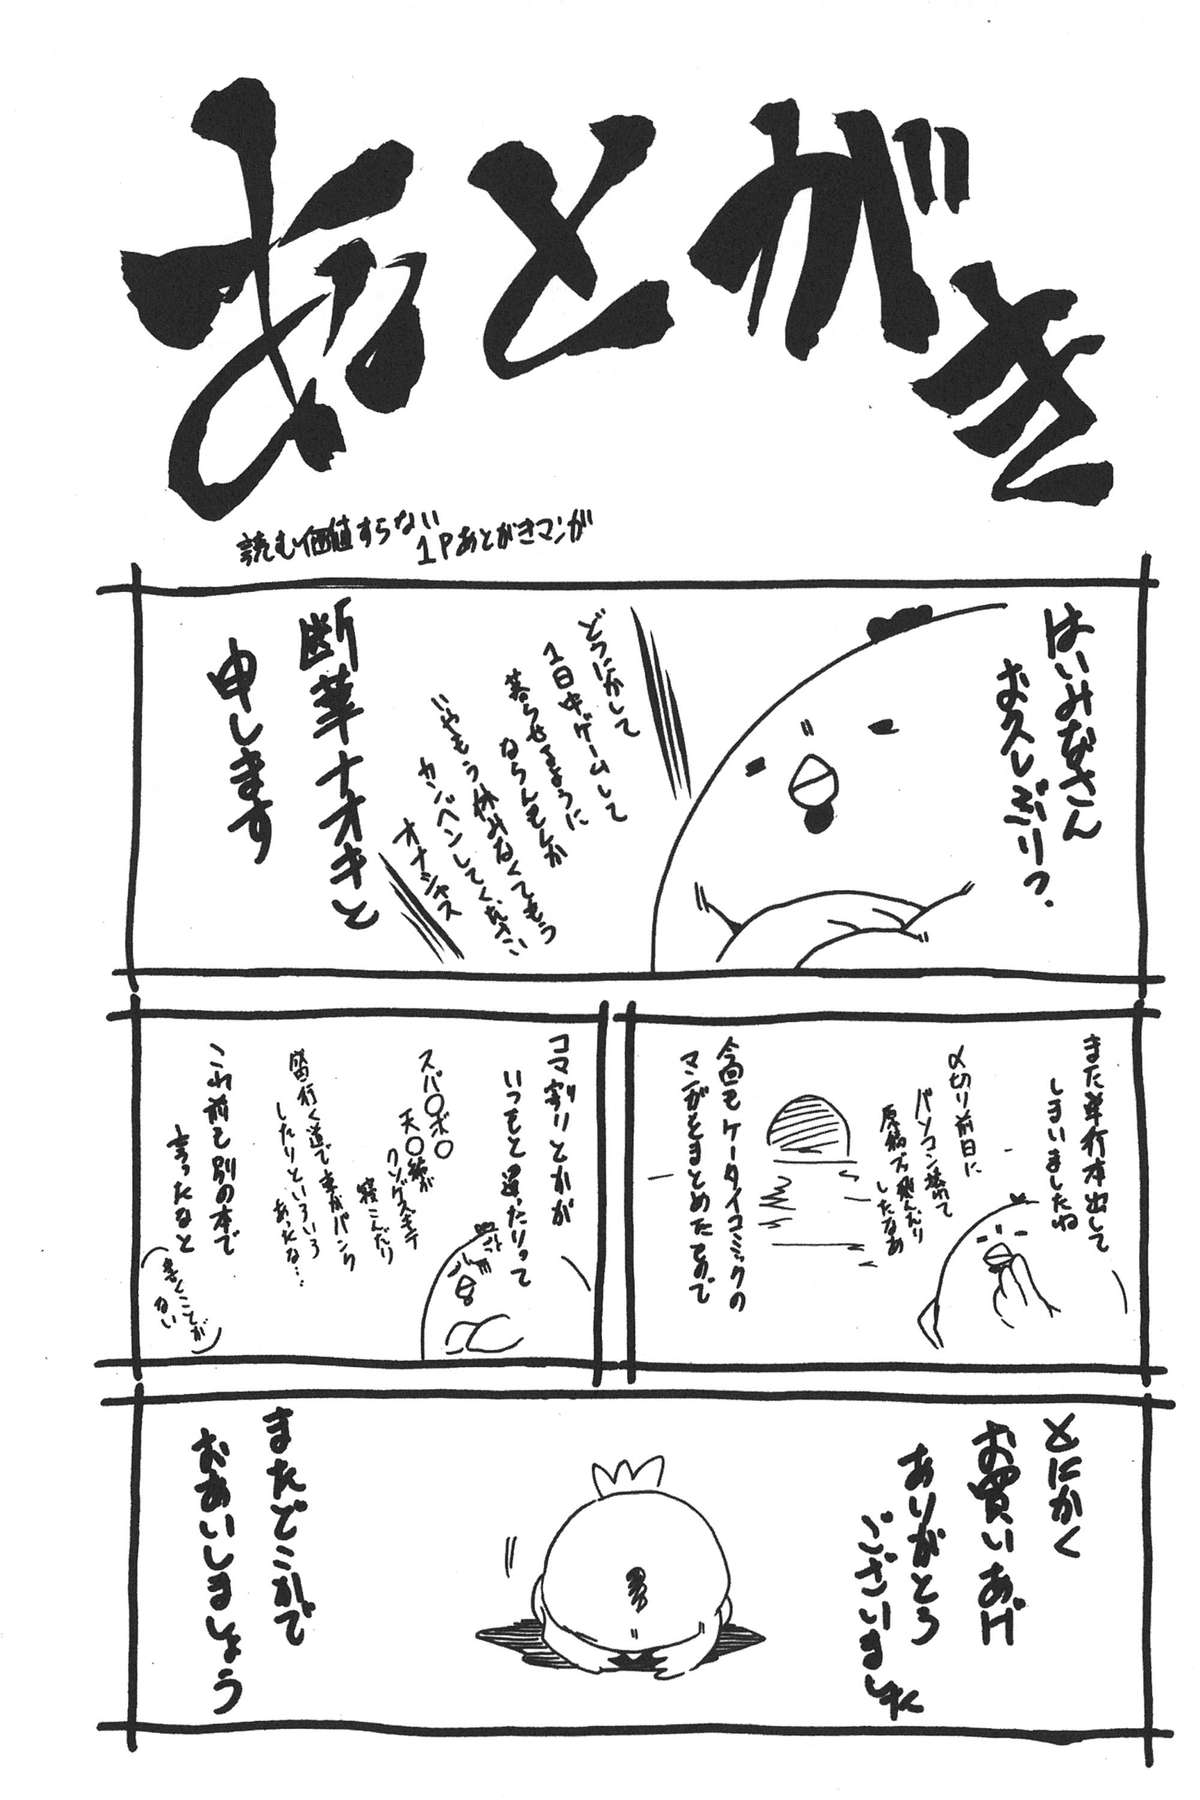 あとがき
読む価値すらない
1Pあとがきマンガ
はいみなさん
お久しぶりっ.
どうにかして
1日中ゲームして
暮らせるように
ならんもんか
いやもう休みなくてもう
カンベンしてください
オナシャス
断華ナオキと
申します
また単行本出して
しまいましたね
〆切り前日に
パソコン壊れて
原稿ブッ飛んだり
したなあ
今回もケータイコミックの
マンガをまとめたもので
コマ割りとかが
いつもと違ったりって
スパ○ボ○
天○編が
クソゲスギテ
寝こんだり
行く道で車がパンク
したりといろいろ
あったな…
これ前も別の本で
言ったなと
(書くことが
ない)
とにかく
お買いあげ
ありがとう
ございました
またどこかで
おあいしましょう